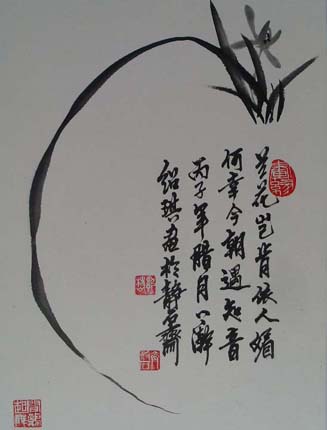 兰花岂肯依人媚
何幸今朝遇知音
丙子年腊月上澣
绍琪画於静石斋